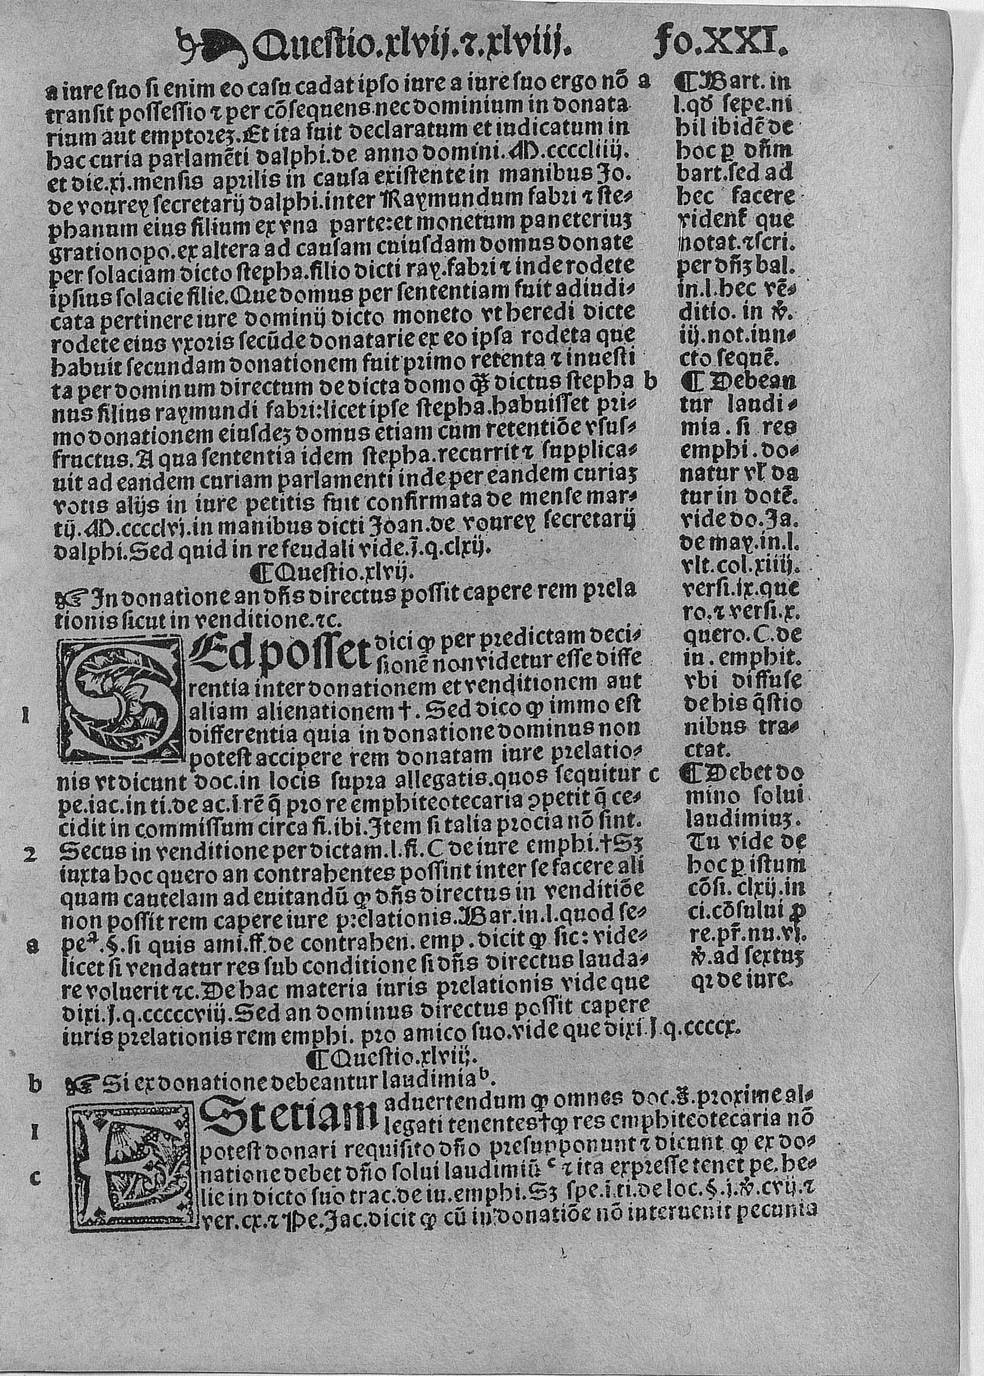 Questio.xlvij.⁊.xlviij. fo.XXI.
a iure suo si enim eo casu cadat ipso iure a iure suo ergo nõ a
transit possessio ⁊ per cõsequens nec dominium in donata
rium aut emptorez. Et ita fuit declaratum et iudicatum in
hac curia parlamẽti dalphi. de anno domini. M.ccccliiij.
et die.xj. mensis aprilis in causa existente in manibus Jo.
de vourey secretarij dalphi. inter Raymundum fabri ⁊ ste⸗
phanum eius filium ex vna parte: et monetum paneteriuz
grationopo. ex altera ad causam cuiusdam domus donate
per solaciam dicto stepha. filio dicti ray. fabri ⁊ inde rodete
ipsius solacie filie. Que domus per sententiam fuit adiudi⸗
cata pertinere iure dominij dicto moneto vt heredi dicte
rodete eius vxoris secũde donatarie ex eo ipsa rodeta que
habuit secundam donationem fuit primo retenta ⁊ inuesti
ta per dominum directum de dicta domo q̃ȝ dictus stepha b
nus filius raymundi fabri: licet ipse stepha. habuisset pri⸗
mo donationem eiusdez domus etiam cum retentiõe vsus⸗
fructus. A qua sententia idem stepha. recurrit ⁊ supplica⸗
uit ad eandem curiam parlamenti inde per eandem curiaz
votis alijs in iure petitis fuit confirmata de mense mar⸗
tij. M.cccclvj. in manibus dicti Joan. de vourey secretarij
dalphi. Sed quid in re feudali vide. j̃. q. clxij.
¶ Questio.xlvij.
☞ In donatione an dñs directus possit capere rem prela
tionis sicut in venditione. ⁊c.
SEd posset dici ꝙ per predictam deci⸗
sionẽ non videtur esse diffe
rentia inter donationem et venditionem aut
1 aliam alienationem †. Sed dico ꝙ immo est
differentia quia in donatione dominus non
potest accipere rem donatam iure prelatio⸗
nis vt dicunt doc. in locis supra allegatis. quos sequitur c
pe. iac. in ti. de ac. ĩ rẽ q̃ pro re emphiteotecaria ɔpetit q̃ ce⸗
cidit in commissum circa fi. ibi. Item si talia procia nõ sint.
2 Secus in venditione per dictam. l. fi. C de iure emphi. † Sȝ
iuxta hoc quero an contrahentes possint inter se facere ali
quam cautelam ad euitandũ ꝙ dñs directus in venditiõe
non possit rem capere iure prelationis. Bar. in. l. quod se⸗
a peᵃ. §. si quis ami. ff. de contrahen. emp. dicit ꝙ sic: vide⸗
licet si vendatur res sub conditione si dñs directus lauda⸗
re voluerit ⁊c. De hac materia iuris prelationis vide que
dixi. j. q. cccccviij. Sed an dominus directus possit capere
iuris prelationis rem emphi. pro amico suo. vide que dixi j. q. ccccx.
¶ Questio.xlviij.
b ☞ Si ex donatione debeantur laudimia ᵇ.
EStetiam aduertendum ꝙ omnes doc. s̃. proxime al⸗
1 legati tenentes † ꝙ res emphiteotecaria nõ
potest donari requisito dño presupponunt ⁊ dicunt ꝙ ex do⸗
c natione debet dño solui laudimiũ ᶜ ⁊ ita expresse tenet pe. he⸗
lie in dicto suo trac. de iu. emphi. Sȝ spe. ĩ ti. de loc. §. j. v̉. cvij. ⁊
ver. cx. ⁊ Pe. Jac. dicit ꝙ cũ in donatiõe nõ interuenit pecunia
¶ Bart. in
l. qd̃ sepe. ni
hil ibidẽ de
hoc ꝑ dñm
bart. sed ad
hec facere
vident̃ que
notat. ⁊ scri.
per dñȝ bal.
in. l. hec vẽ⸗
ditio. in v̉.
iij. not. iun⸗
cto sequẽ.
¶ Debean
tur laudi⸗
mia. si res
emphi. do⸗
natur vl̃ da
tur in dotẽ.
vide do. Ja.
de may. in. l.
vlt. col. xiiij.
versi. ix. que
ro. ⁊ versi. x.
quero. C. de
iu. emphit.
vbi diffuse
de his q̃stio
nibus tra⸗
ctat.
¶ Debet do
mino solui
laudimiuȝ.
Tu vide de
hoc ꝑ istum
cõsi. clxij. in
ci. cõsului ꝓ
re. pr̃. nu. vj.
v̉. ad sextuȝ
qꝛ de iure.